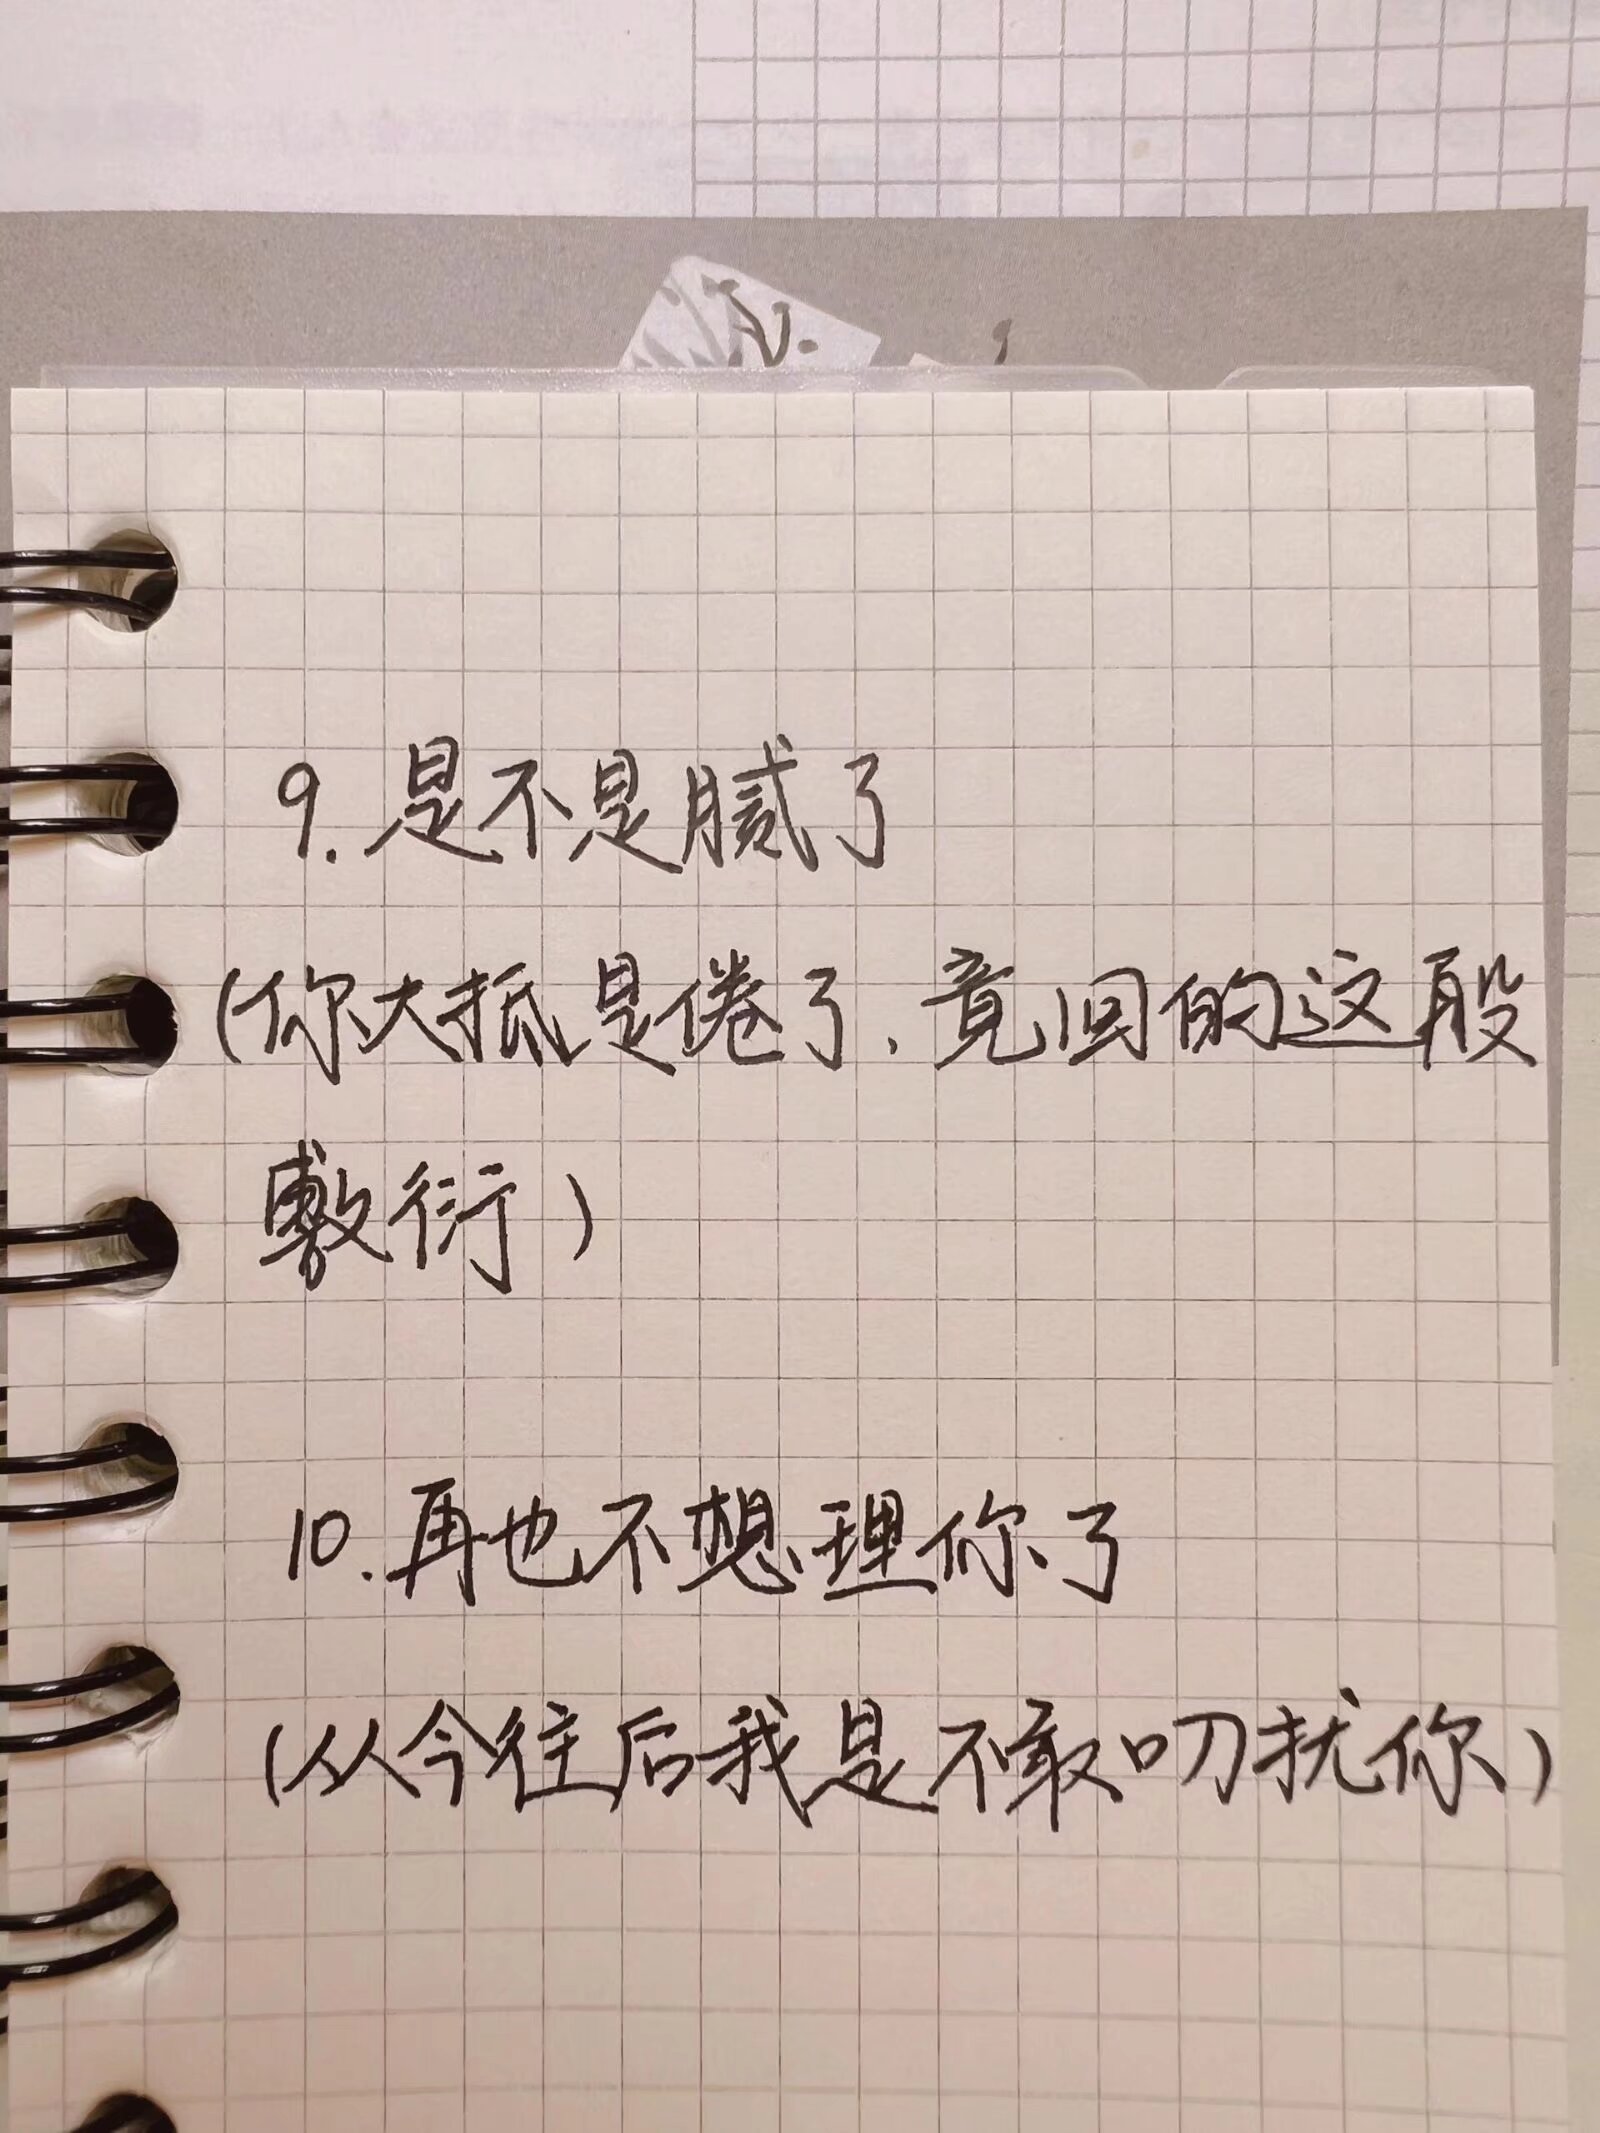 9.是不是腻了
(你大抵是倦了、竟回的这般
敷衍)
10.再也不想理你了
(从今往后我是不敢叨扰你)